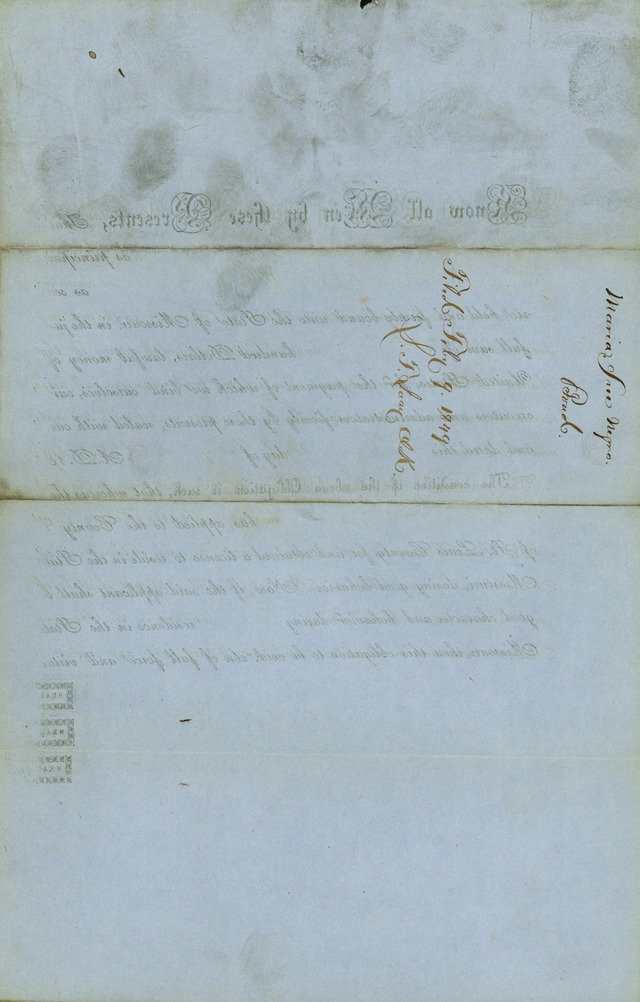 Maria a Free Negro.
Bond.
Filed Feby 9. 1849
Know all Men by these Presents,
as principal
as se
and held and firmly bound unto the State of Missouri, in the ju
full sum of hundred Dollars, lawful money of
United States the payment of which we bind ourselves, our
executors and administrators firmly by these presents, sealed with our
and dated this day of A.D. 18
The condition of the above Obligation is such, that whereas the
has applied to the County
of St. Louis County for and obtained a license to reside in the State
Missouri, during good behavior: Now if the said applicant shall b
good character and behavior during residence in the State
Missouri, then this obligation to be void, else of full force and virtue
SEAL
SEAL
SEAL